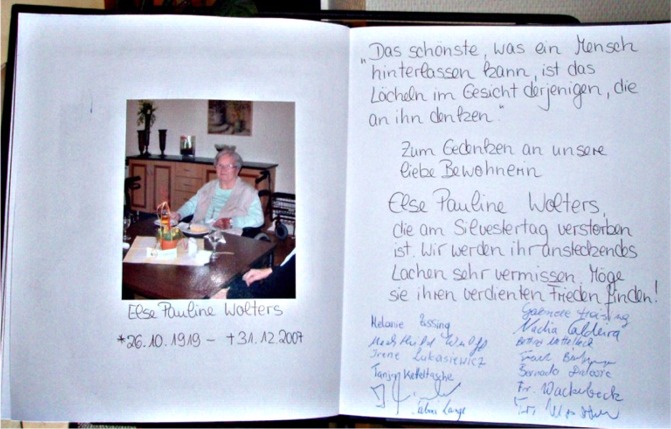 Else Pauline Wolters
*26.10.1919 – †31.12.2007
„Das schönste, was ein Mensch
hinterlassen kann, ist das
Lächeln im Gesicht derjenigen, die
an ihn denken."
Zum Gedenken an unsere
liebe Bewohnerin
Else Pauline Wolters,
die am Silvestertag verstorben
ist. Wir werden ihr ansteckendes
Lachen sehr vermissen. Möge
sie ihren verdienten Frieden finden!
Melanie Passing
Irene Lukasiewicz
Nadia Caldeira
Fr. Wackerbeck